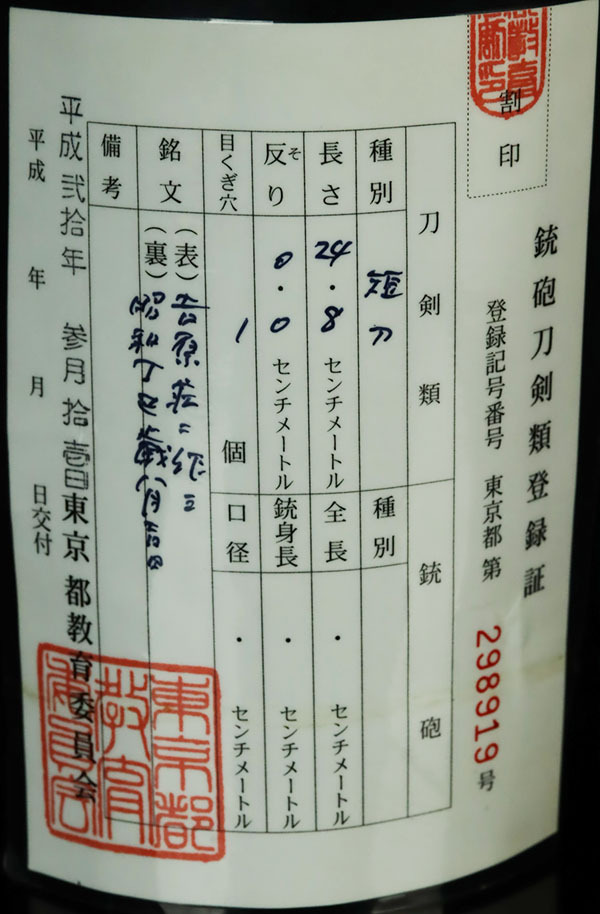 割印
銃砲刀剣類登録証
登録記号番号 東京都 第 298919 号
刀剣類
銃砲
種別 短刀
種別
長さ 24.8 センチメートル
全長 ・ センチメートル
反り そ 0.0 センチメートル
銃身長 ・ センチメートル
目くぎ穴 1 個
口径 ・ センチメートル
銘文
(表) 吉原荘二作之
(裏) 昭和丁巳歳八月吉日
備考
平成弐拾年 参月拾壱日 東京都教育委員会
平成 年 月 日交付
東京都教育委員会